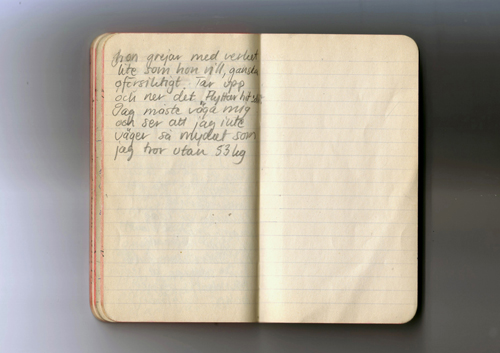 hon grejar med verket
lite som hon vill, ganska
oförsiktigt. Tar upp
och ner det. Flyttar hit
Jag måste våga mig
och ser att jag inte
väger så mycket som
jag tror utan 53 kg